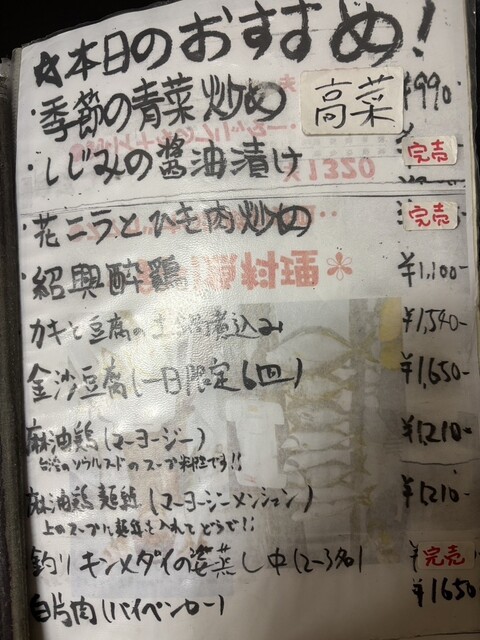 ☆本日のおすすめ!
・季節の青菜炒め 高菜 ¥990-
・しじみの醤油漬け 完売
・花ニラとひき肉炒め 完売
・紹興酔鶏 ¥1,100-
カキと豆腐の土鍋煮込み ¥1,540-
金沙豆腐(一日限定6皿) ¥1,650-
麻油鶏(マーヨージー) ¥1,210-
台湾のソウルフードのスープ料理です!!
麻油鶏麺線(マーヨージーメンシェン) ¥1,210-
上のスープに麺線を入れてどうぞ!!
釣りキンメダイの姿蒸し中(2〜3名) ¥ 完売
白片肉(バイペンロー) ¥1650
¥1320
料理*